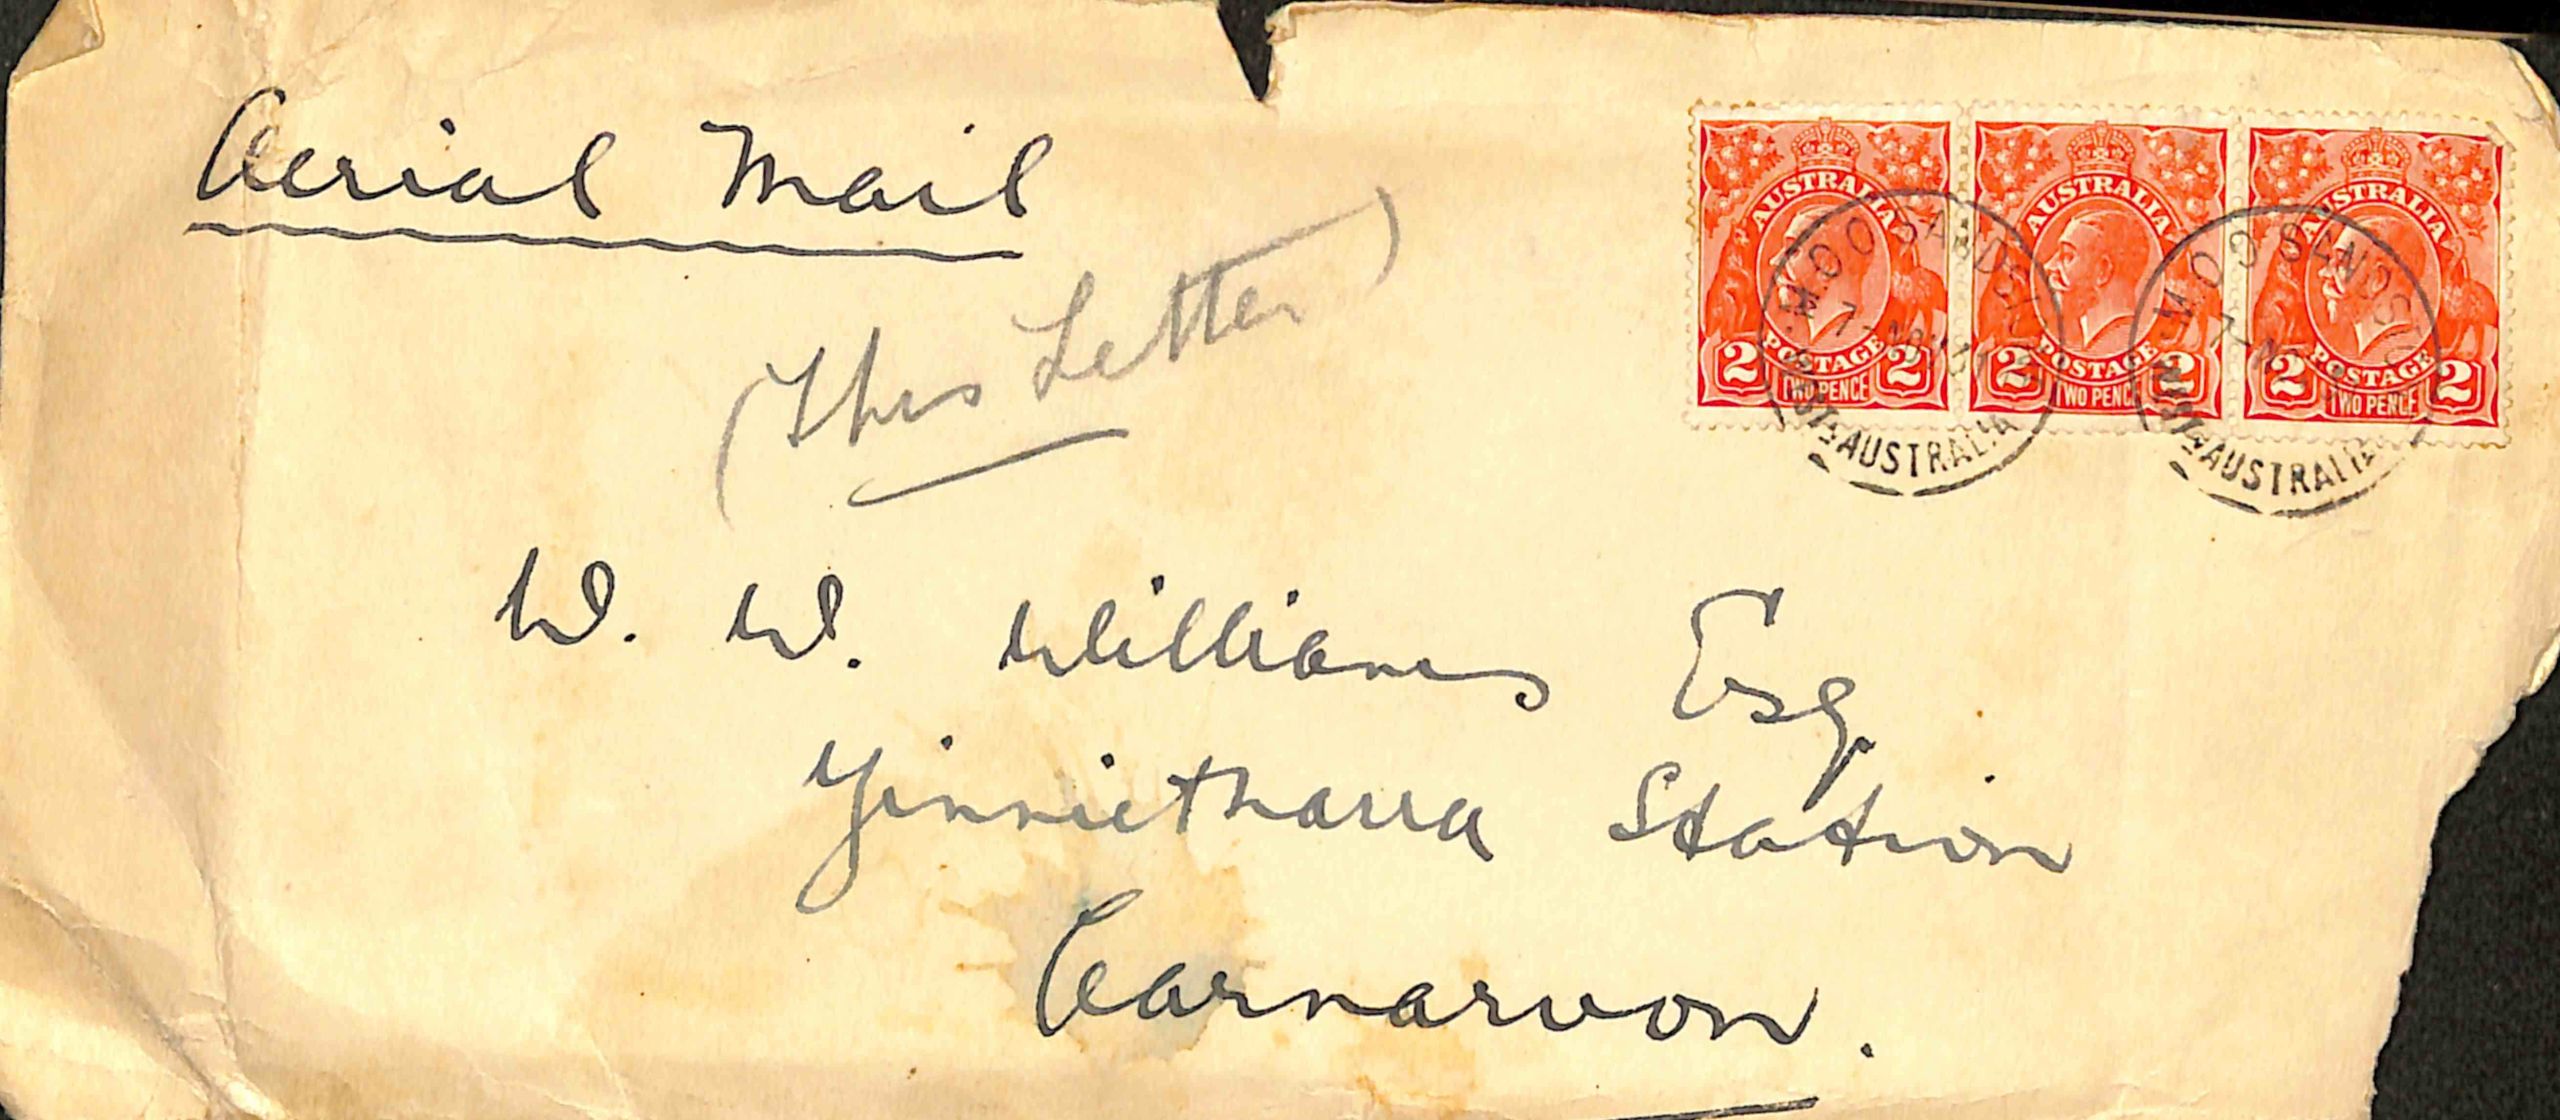 Aerial Mail
(This Letter)
AUSTRALIA POSTAGE 2 2 TWO PENCE
AUSTRALIA POSTAGE 2 2 TWO PENCE
AUSTRALIA POSTAGE 2 2 TWO PENCE
M.O.O
AUSTRALIA
M.O.O
AUSTRALIA
W. W. Williams Esq
Yinnietharra Station
Carnarvon.